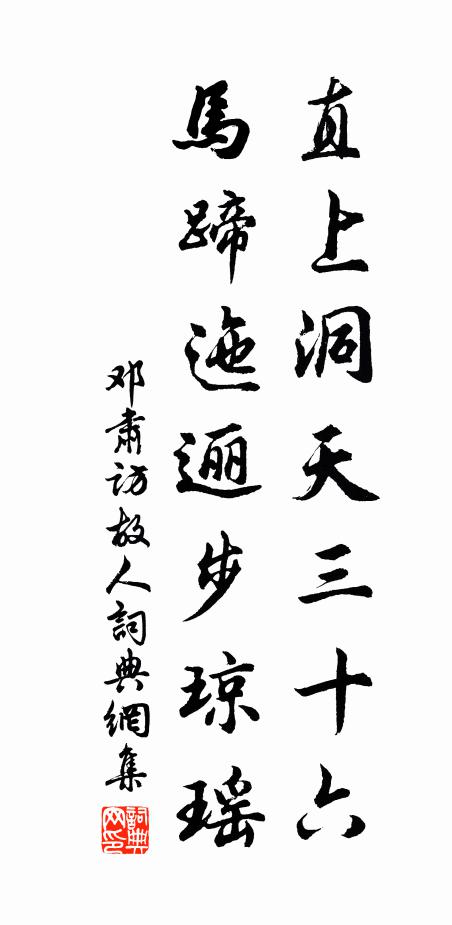 直上洞天三十六
馬蹄迤逦步琼瑶
邓肅访故人詞典網集
詞典网印